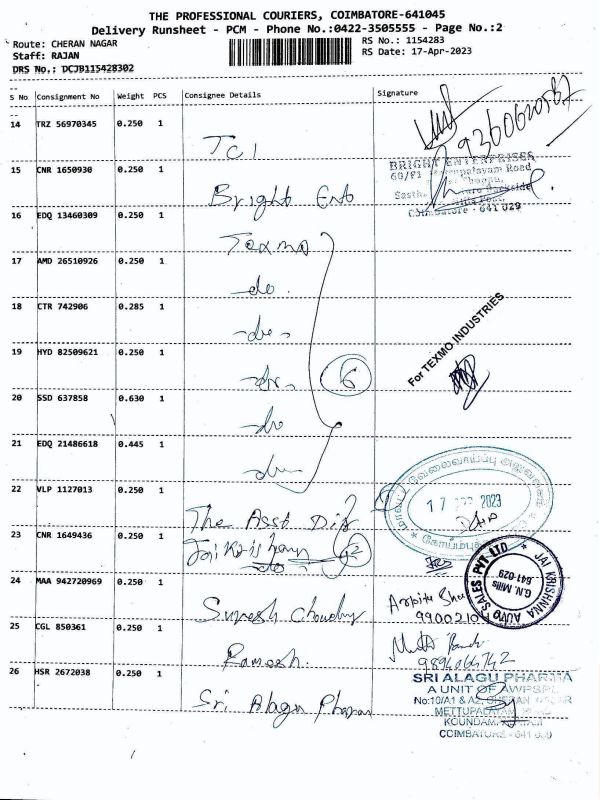 THE PROFESSIONAL COURIERS, COIMBATORE-641045
Delivery Runsheet - PCM - Phone No.:0422-3505555 - Page No.:2
Route: CHERAN NAGAR
RS No.: 1154283
Staff: RAJAN
RS Date: 17-Apr-2023
DRS No.: DCJB115428302
S No Consignment No Weight PCS Consignee Details Signature
14 TRZ 56970345 0.250 1 TCI
9360620587
15 CNR 1650930 0.250 1 Bright Ent
BRIGHT ENTERPRISES
Road
Coimbatore - 641 029
16 EDQ 13460309 0.250 1 Texmo
17 AMD 26510926 0.250 1 -do-
18 CTR 742906 0.285 1 -do-
19 HYD 82509621 0.250 1 -do-
6
For TEXMO INDUSTRIES
20 SSD 637858 0.630 1 -do-
21 EDQ 21486618 0.445 1 -do-
22 VLP 1127013 0.250 1 The Asst Dir
17 APR 2023
23 CNR 1649436 0.250 1 Jaikrishna
-do- 2
JAI KRISHNA AUTO SALES PVT LTD
G.N. Mills
641-029
24 MAA 942720969 0.250 1 Suresh Choudry
99002104
25 CGL 850361 0.250 1 Ramesh.
9894064742
26 HSR 2672038 0.250 1 Sri Alagu Pharma
SRI ALAGU PHARMA
A UNIT OF AWPSPL
No:10/A1 & A2, CHERAN NAGAR
METTUPALAYAM ROAD
KOUNDAM
COIMBATORE - 641 030